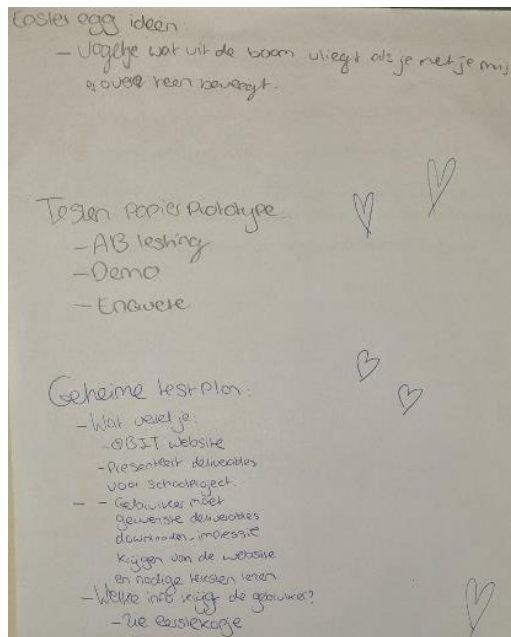 Easter egg ideen
- Vogeltje wat uit de boom vliegt als je met je muis
er overheen beweegt.
Testen papier Prototype.
- AB testing
- Demo
- Enquete
Geheime testplan:
- Wat vertel je:
- QBIT website
- Presenteert deliverables
voor schoolproject.
- - Gebruiker moet
gewenste deliverables
downloaden, impressie
krijgen van de website
en nodige teksten lezen
- Welke info krijgt de gebruiker?
- Zie